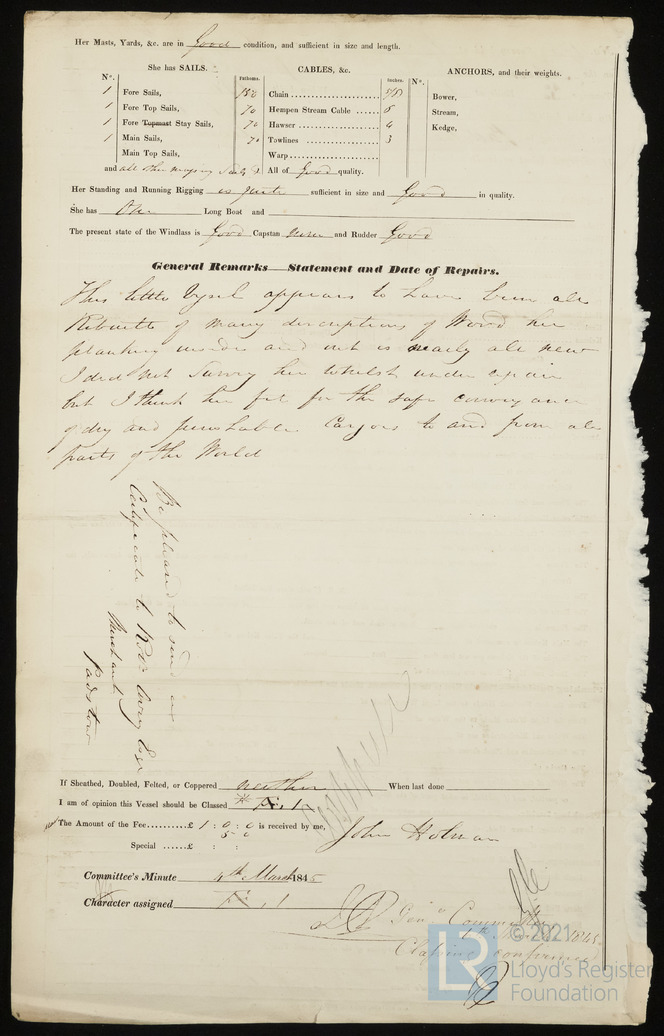 Her Masts, Yards, &c. are in Good condition, and sufficient in size and length.
She has SAILS. CABLES, &c. ANCHORS, and their weights.
N°. Fathoms. Inches. N°.
1 Fore Sails, Chain Bower,
1 Fore Top Sails, 70 Hempen Stream Cable 6 Stream,
1 Fore Topmast Stay Sails, 70 Hawser 4 Kedge,
1 Main Sails, 70 Towlines 3
Main Top Sails, Warp
and all other necessary Sails All of Good quality.
Her Standing and Running Rigging is quite sufficient in size and Good in quality.
She has One Long Boat and
The present state of the Windlass is Good Capstan none and Rudder Good
General Remarks—Statement and Date of Repairs.
This little Vessel appears to have been all
Rebuilt of many descriptions of Wood her
planking inside and out is nearly all new
I did not Survey her Whilst under repair
but I think her fit for the safe conveyance
of dry and perishable Cargoes to and from all
parts of the World
Be pleased to send
Certificate to Esqr
Merchant
Padstow
If Sheathed, Doubled, Felted, or Coppered neither When last done
I am of opinion this Vessel should be Classed
The Amount of the Fee £ 1 : 0 : 0 is received by me,
John Holman
Special £ : :
Committee's Minute 4th March 1845
Character assigned
Committee
1845
Classing confirmed
© 2021
LR
Lloyd's Register
Foundation